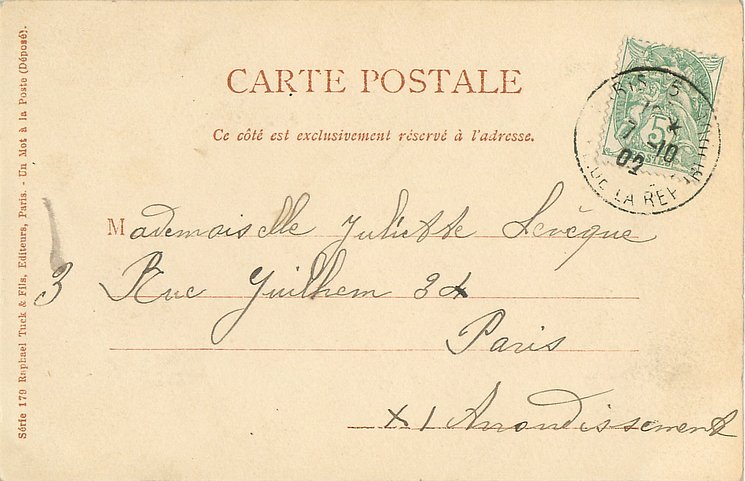 CARTE POSTALE
Ce côté est exclusivement réservé à l'adresse.
5
POSTES
7 -10
02
LA REP
Mademoiselle Juliette Levêque
3 Rue Guilhem 34
Paris
XI Arrondissement
Série 179 Raphael Tuck & Fils, Editeurs, Paris. - Un Mot à la Poste (Déposé).